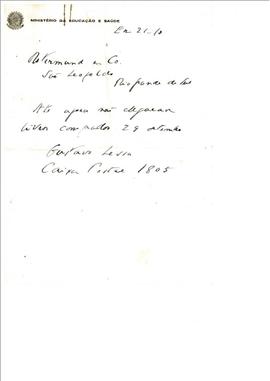 MINISTÉRIO DA EDUCAÇÃO E SAÚDE
Em 21/10
Rotermund en Co.
São Leopoldo
Rio Grande do Sul
Até agora não chegaram
livros comprados 29 setembro
Gustavo Lessa
Caixa Postal 1805